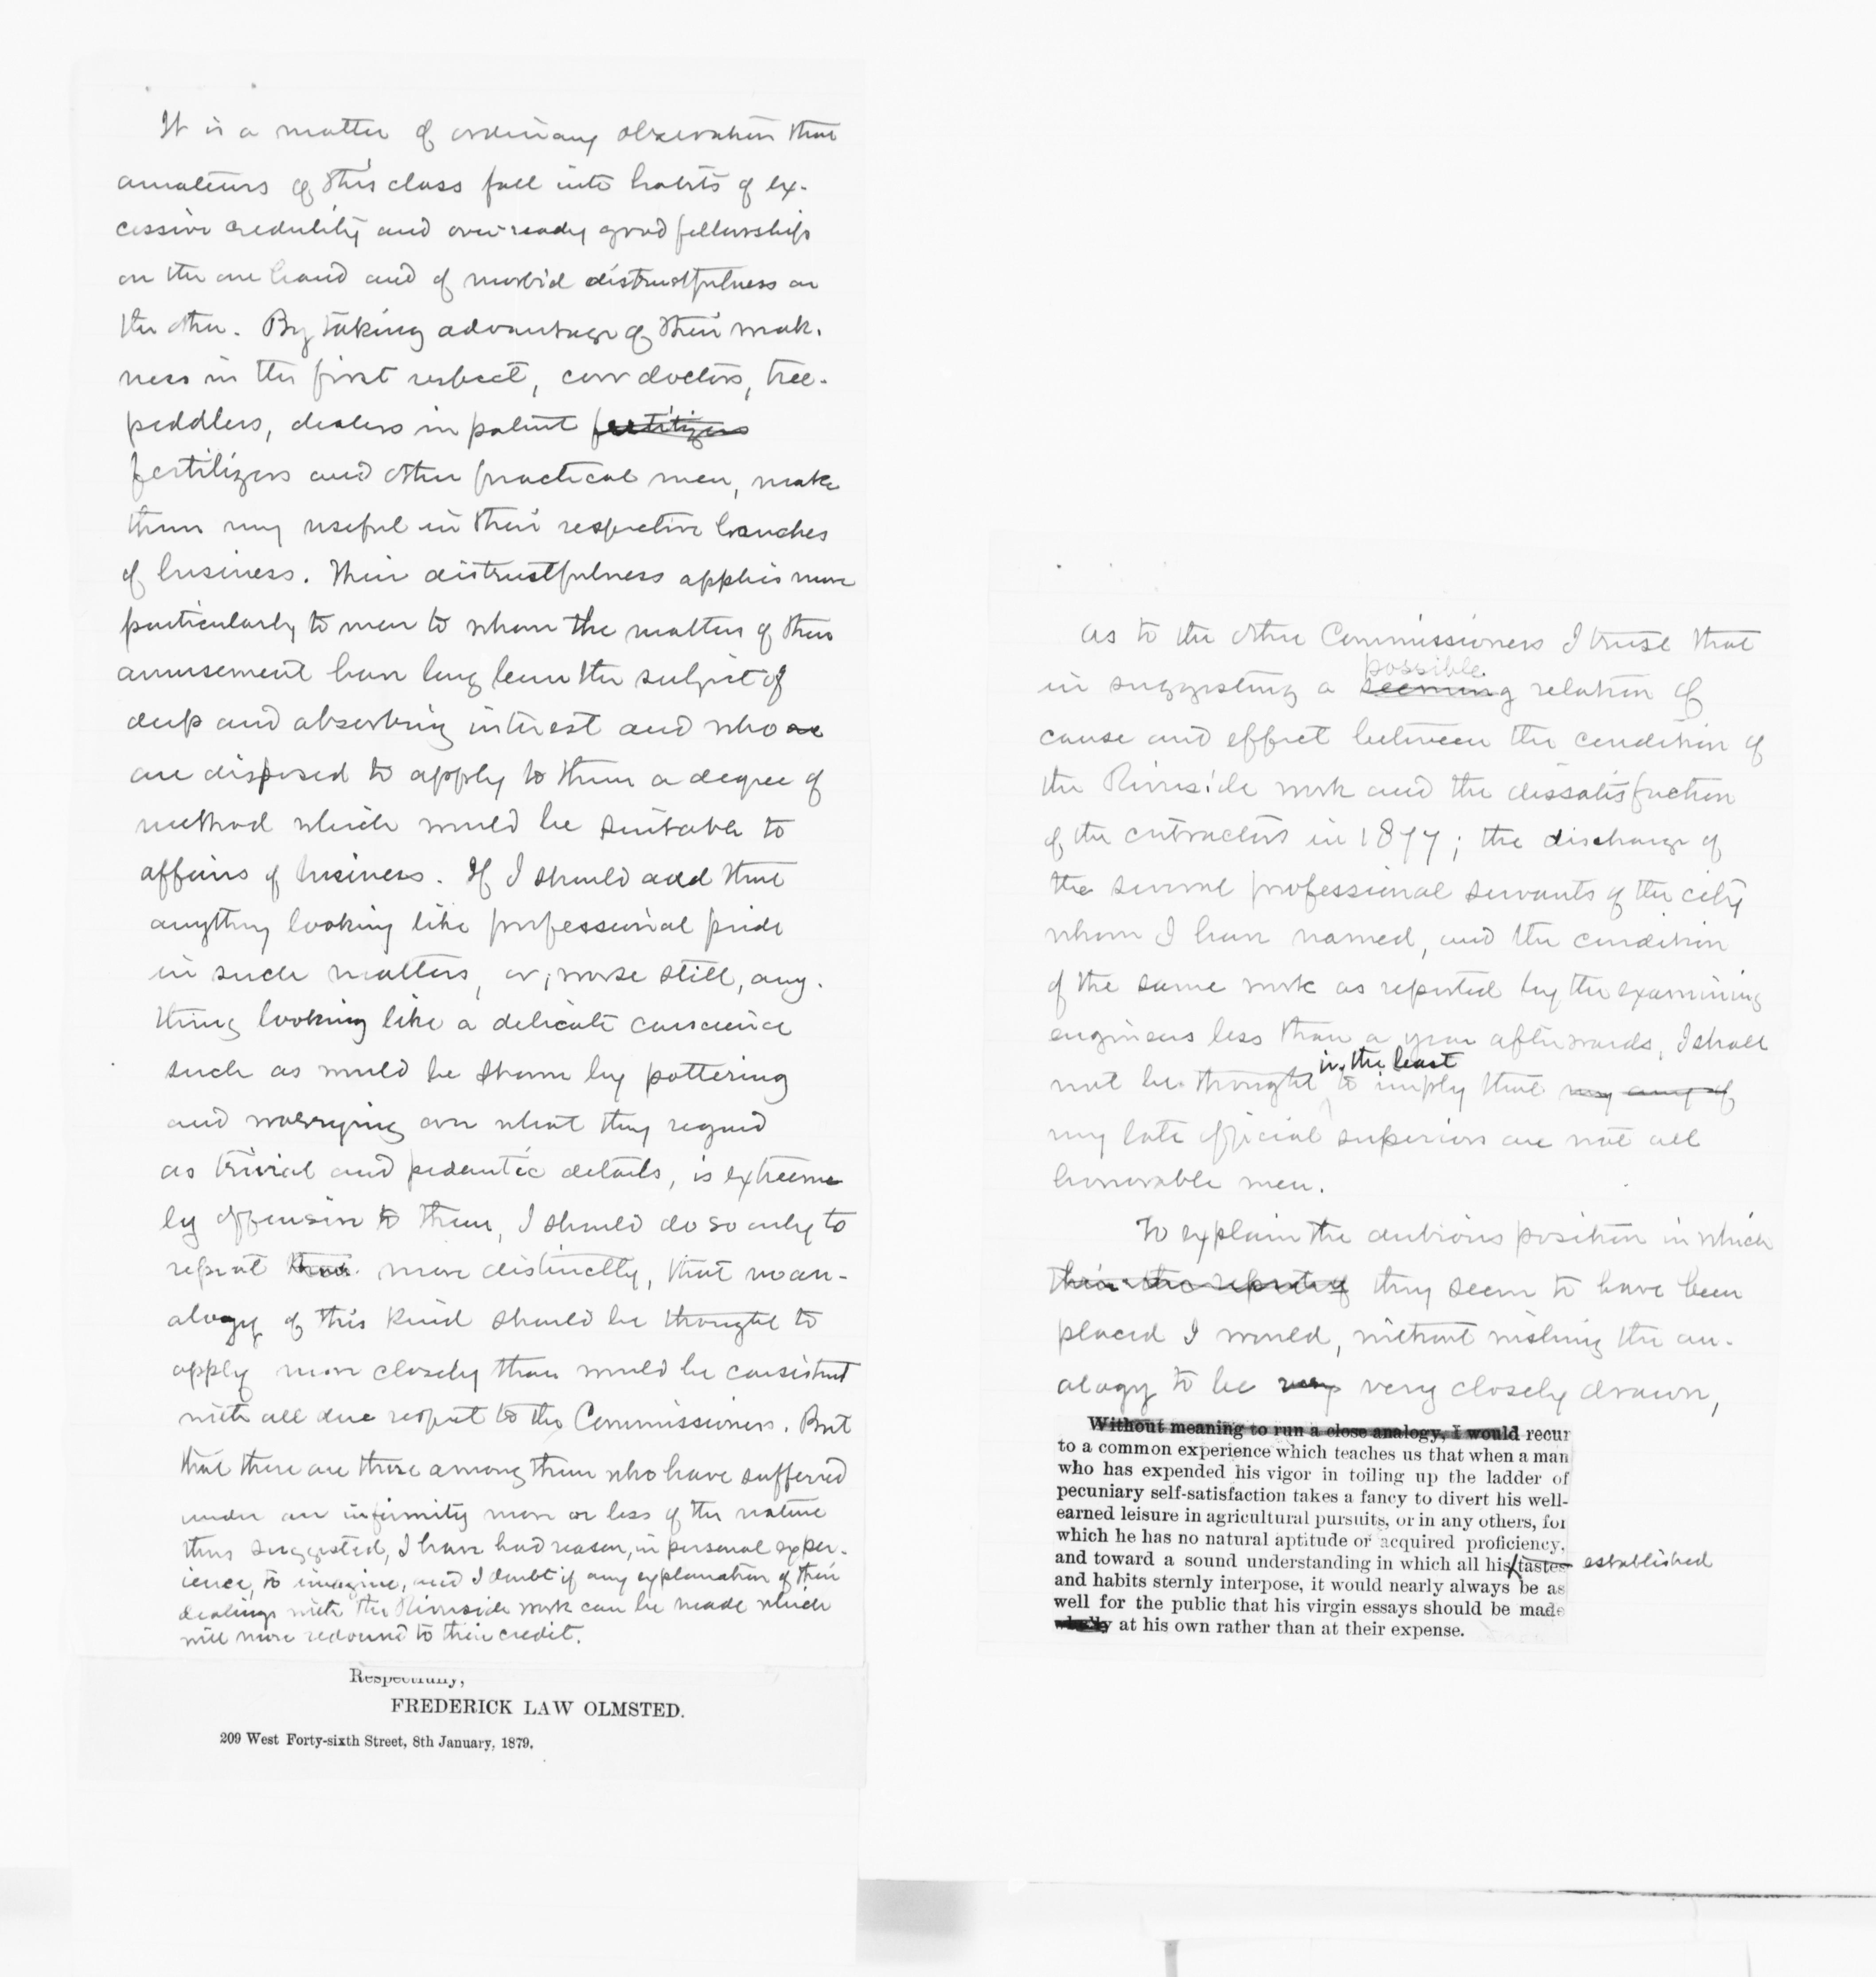 It is a matter of ordinary observation that
amateurs of this class fall into habits of ex-
cessive credulity and over-ready good fellowship
on the one hand and of morbid distrustfulness on
the other. By taking advantage of their weak-
ness in the first respect, cow doctors, tree-
peddlers, dealers in patent fertilizers
fertilizers and other practical men, make
them very useful in their respective branches
of business. Their distrustfulness applies more
particularly to men to whom the matters of their
amusement have long been the subject of
deep and absorbing interest and who are
are disposed to apply to them a degree of
method which would be suitable to
affairs of business. If I should add that
anything looking like professional pride
in such matters, or, worse still, any-
thing looking like a delicate conscience
such as would be shown by pottering
and worrying over what they regard
as trivial and pedantic details, is extreme
ly offensive to them, I should do so only to
repeat more distinctly, that no an-
alogy of this kind should be thought to
apply more closely than would be consistent
with all due respect to the Commissioners. But
that there are those among them who have suffered
under an infirmity more or less of the nature
thus suggested, I have had reason, in personal exper-
ience, to imagine, and I doubt if any explanation of their
dealings with the Riverside work can be made which
will more redound to their credit.
Respectfully,
FREDERICK LAW OLMSTED.
209 West Forty-sixth Street, 8th January, 1879.
As to the other Commissioners I trust that
possible
in suggesting a seeming relation of
cause and effect between the condition of
the Riverside work and the dissatisfaction
of the contractors in 1877; the discharge of
the several professional servants of the city
whom I have named, and the condition
of the same work as reported by the examining
engineers less than a year afterwards, I shall
in the least
not be thought to imply that my any of
my late official superiors are not all
honorable men.
To explain the dubious position in which
they seem to have been
placed I would, without wishing the an-
alogy to be very very closely drawn,
Without meaning to run a close analogy, I would recur
to a common experience which teaches us that when a man
who has expended his vigor in toiling up the ladder of
pecuniary self-satisfaction takes a fancy to divert his well-
earned leisure in agricultural pursuits, or in any others, for
which he has no natural aptitude or acquired proficiency,
and toward a sound understanding in which all his tastes established
and habits sternly interpose, it would nearly always be as
well for the public that his virgin essays should be made
wholly at his own rather than at their expense.